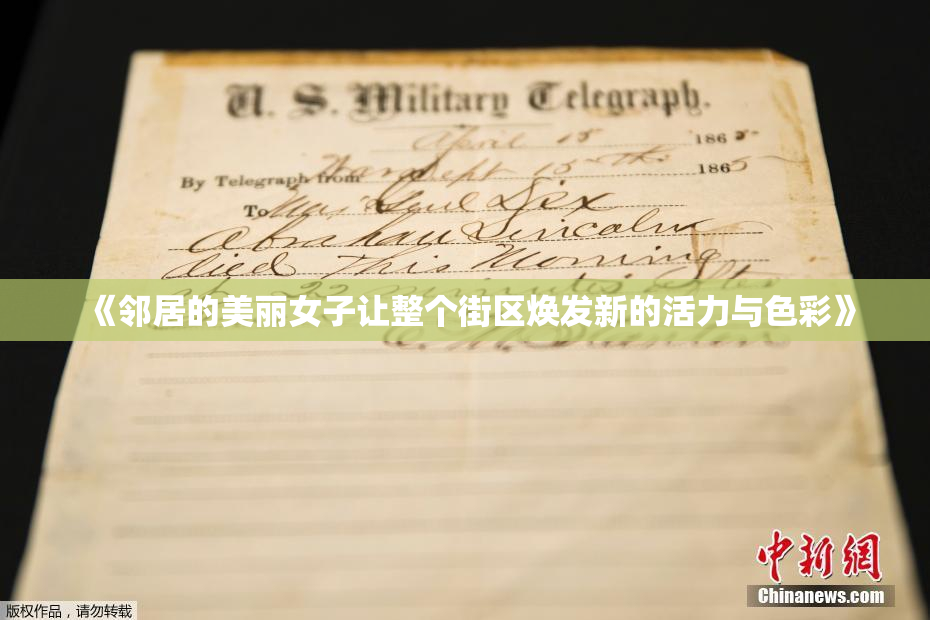 U. S. Military Telegraph.
April 15 1865
By Telegraph from War Dept 15th 1865
To Maj Genl Dix
Abraham Lincoln
died This Morning
at 22 minutes after
《邻居的美丽女子让整个街区焕发新的活力与色彩》
E. M. Stanton
中新网
Chinanews.com
版权作品，请勿转载